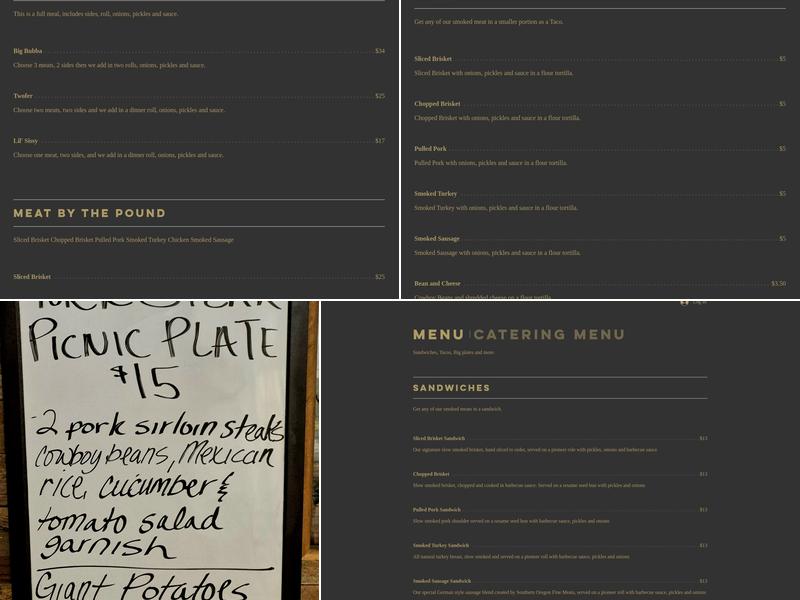 This is a full meal, includes sides, roll, onions, pickles and sauce.
Big Bubba $34
Choose 3 meats, 2 sides then we add in two rolls, onions, pickles and sauce.
Twofer $25
Choose two meats, two sides and we add in a dinner roll, onions, pickles and sauce.
Lil' Sissy $17
Choose one meat, two sides, and we add in a dinner roll, onions, pickles and sauce.
MEAT BY THE POUND
Sliced Brisket Chopped Brisket Pulled Pork Smoked Turkey Chicken Smoked Sausage
Sliced Brisket $25
Get any of our smoked meat in a smaller portion as a Taco.
Sliced Brisket $5
Sliced Brisket with onions, pickles and sauce in a flour tortilla.
Chopped Brisket $5
Chopped Brisket with onions, pickles and sauce in a flour tortilla.
Pulled Pork $5
Pulled Pork with onions, pickles and sauce in a flour tortilla.
Smoked Turkey $5
Smoked Turkey with onions, pickles and sauce in a flour tortilla.
Smoked Sausage $5
Smoked Sausage with onions, pickles and sauce in a flour tortilla.
Bean and Cheese $3.50
Cowboy Beans and shredded cheese on a flour tortilla.
PICNIC PLATE
$15
-2 pork sirloin steaks
cowboy beans, Mexican
rice, cucumber &
tomato salad
garnish
Giant Potatoes
Log In
MENU | CATERING MENU
Sandwiches, Tacos, Big plates and more
SANDWICHES
Get any of our smoked meats in a sandwich.
Sliced Brisket Sandwich $13
Our signature slow smoked brisket, hand sliced to order, served on a pioneer role with pickles, onions and barbecue sauce
Chopped Brisket $13
Slow smoked brisket, chopped and cooked in barbecue sauce. Served on a sesame seed bun with pickles and onions
Pulled Pork Sandwich $13
Slow smoked pork shoulder served on a sesame seed bun with barbecue sauce, pickles and onions
Smoked Turkey Sandwich $13
All natural turkey breast, slow smoked and served on a pioneer roll with barbecue sauce, pickles and onions
Smoked Sausage Sandwich $13
Our special German style sausage blend created by Southern Oregon Fine Meats, served on a pioneer roll with barbecue sauce, pickles and onions